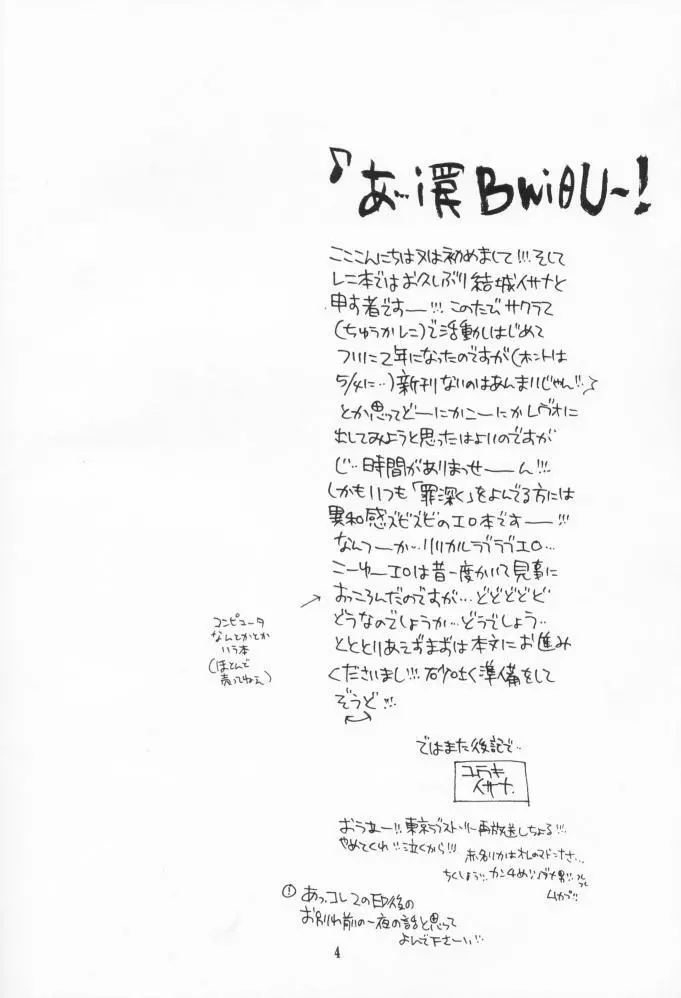 こここんにちは又は初めまして!!!そして
レニ本ではお久しぶり結城イサナと
申す者ですー!!!このたびサクラて
(ちゅうかレニ)で活動しはじめて
ついに2年になったのですが(ホントは
5/4に…)新刊ないのはあんまいじゃん!!
とか思ってどーにかこーにかレヴォに
出してみようと思ったはよいのですが
じ…時間がありまっせーーん!!!
しかもいつも「罪深く」をよんでる方には
異和感ズビズビのエロ本ですー!!!
なんつーか…リリカルラブラブエロ…
こーゆーエロは昔一度かいて見事に
おっころんだのですが…どどどどど
どうなのでしょうか…どうでしょう…
とととりあえずまずは本文にお進み
くださいまし!!!砂吐く準備をして
ぞうど!!!
コンピュータ
なんとかとか
いう本
(ほとんど
売ってねえ)
ではまた後記で…
ユウキ
イサナ
おうおー!!東京ラブストーリー再放送しちょる!!!
やめてくれ!!泣くから!!!
赤名リカはオレのマドンナさ…
ちくしょう!!カンチめ!!ダメ男!!
ムカブ!!
! あっコレ2の印後の
お別れ前の一夜の話と思って
よんで下さーい!!
4